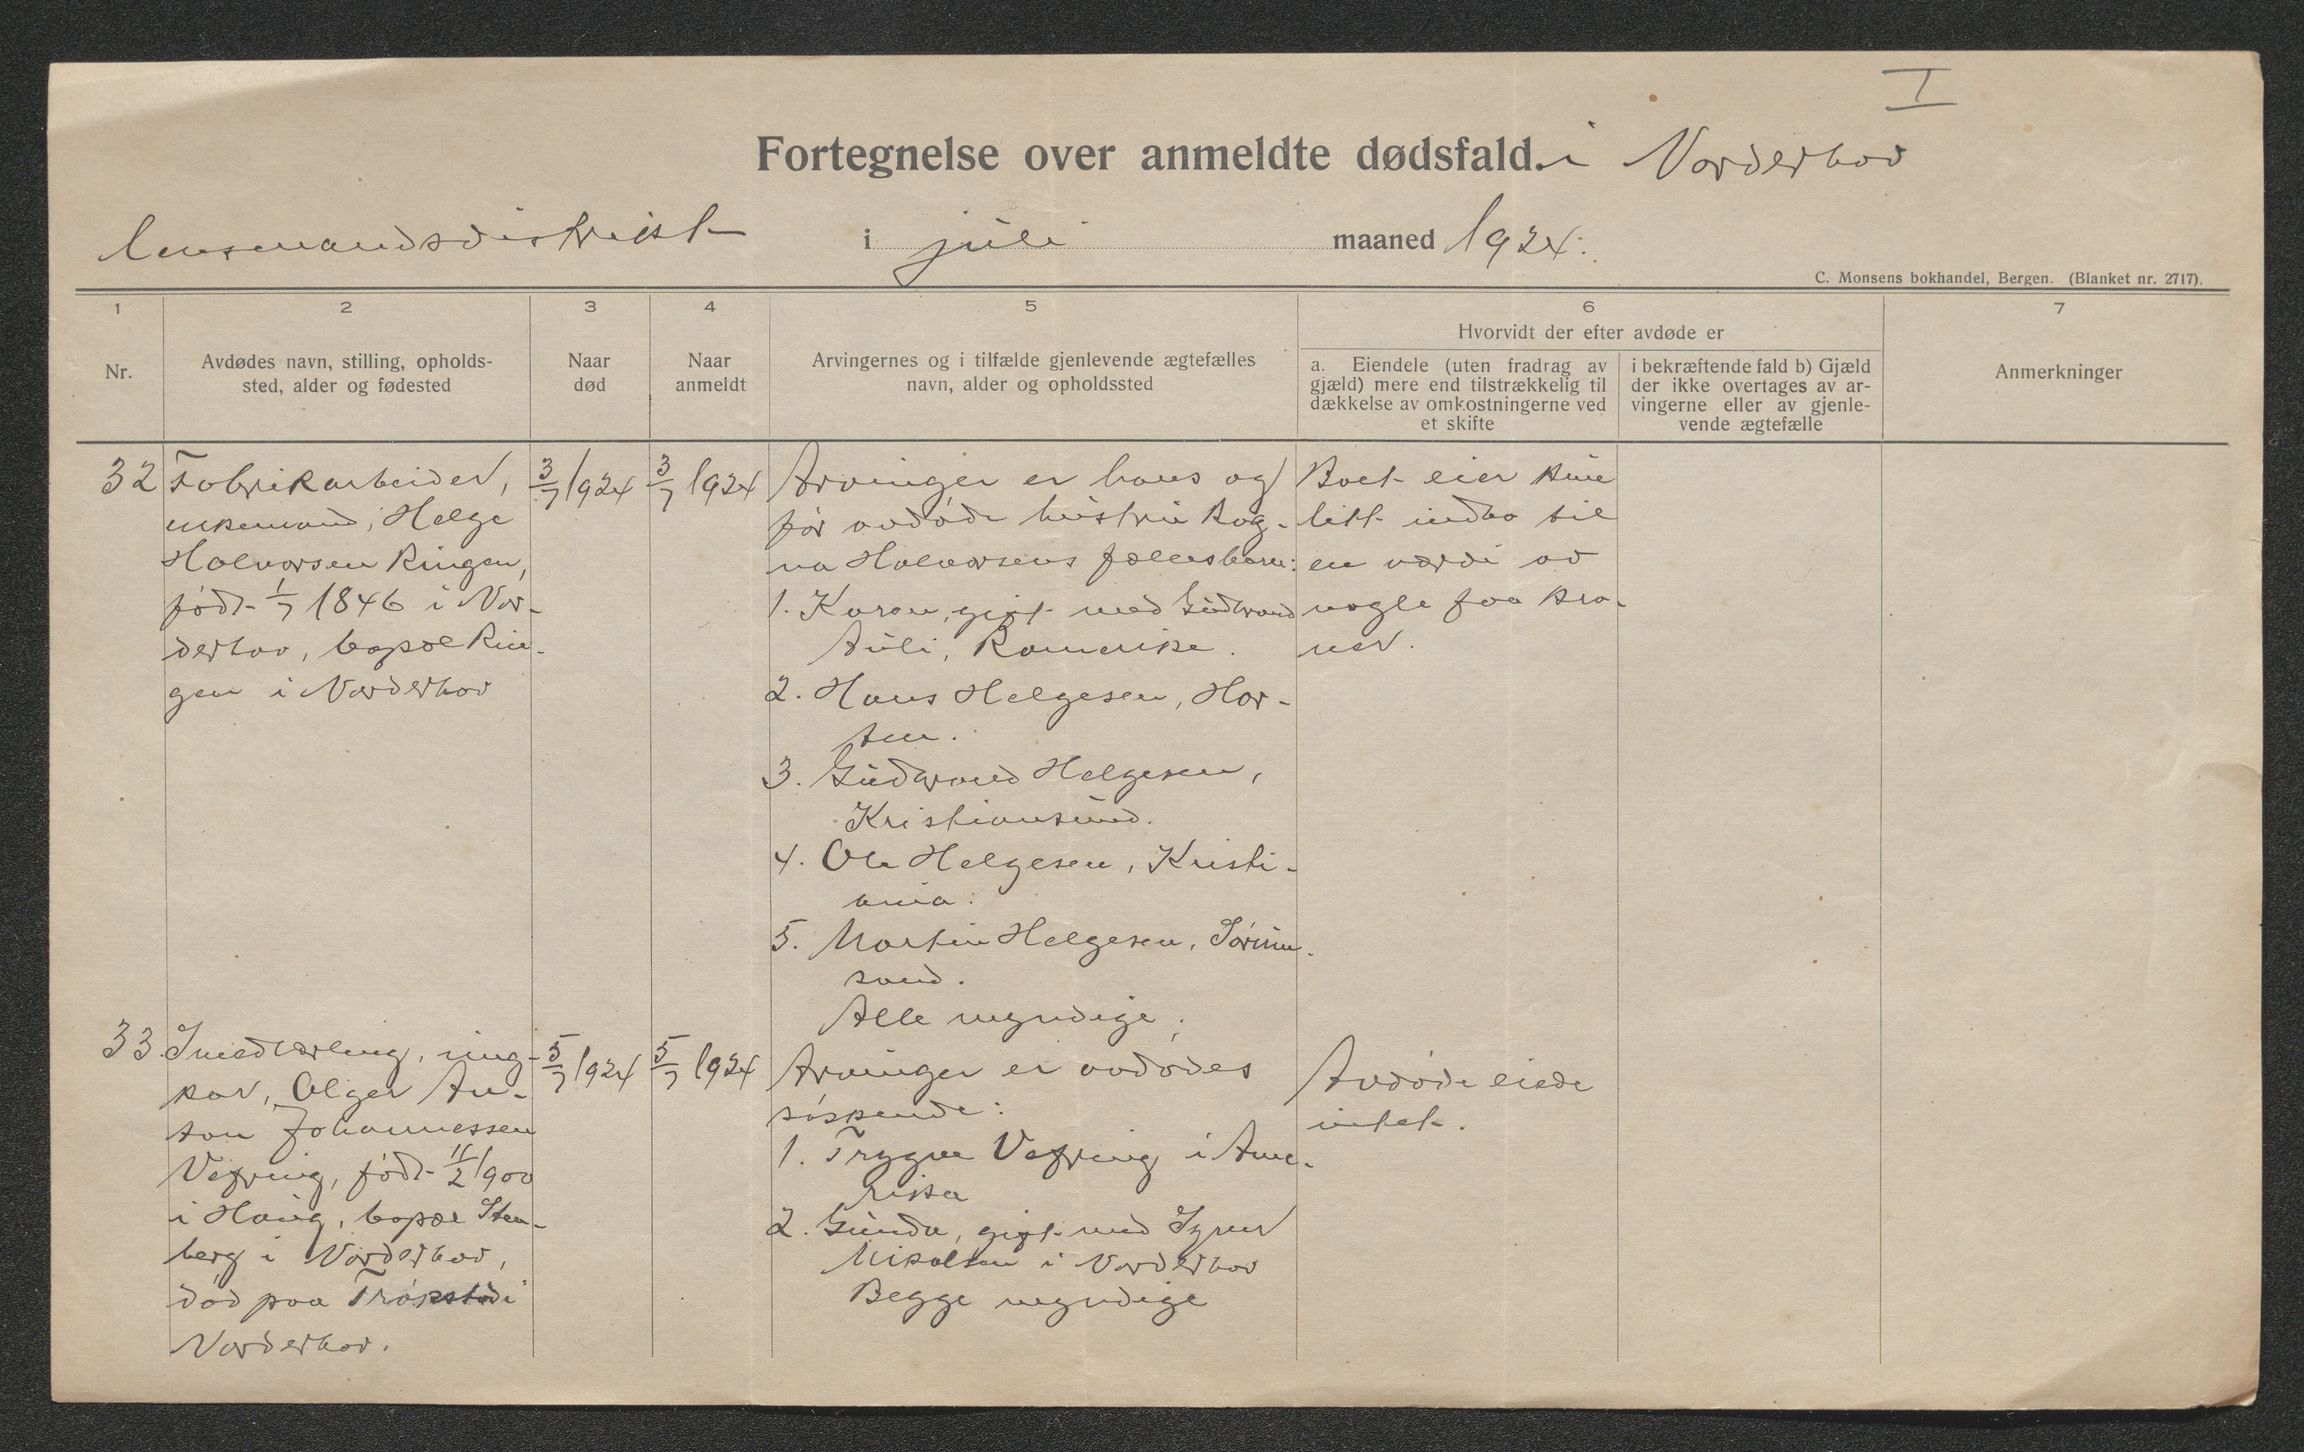 I
Fortegnelse over anmeldte dødsfald. i Norderhov
lensmandsdistrikt i juli maaned 1924.
C. Monsens bokhandel, Bergen. (Blanket nr. 2717).
1
2
3
4
5
6
7
Nr.
Avdødes navn, stilling, opholds-
sted, alder og fødested
Naar
død
Naar
anmeldt
Arvingernes og i tilfælde gjenlevende ægtefælles
navn, alder og opholdssted
Hvorvidt der efter avdøde er
a. Eiendele (uten fradrag av
gjæld) mere end tilstrækkelig til
dækkelse av omkostningerne ved
et skifte
i bekræftende fald b) Gjæld
der ikke overtages av ar-
vingerne eller av gjenle-
vende ægtefælle
Anmerkninger
32
Fabrikarbeider,
enkemand, Helge
Halvorsen Ringen,
født 1/7 1846 i Nor-
derhov, bopæl Rin-
gen i Norderhov
3/7 1924
3/7 1924
Arvinger er hans og
før avdøde hustru Rag-
na Halvorsens fællesbarn:
1. Karen, gift med Gudbrand
Auli, Romerike.
2. Hans Helgesen, Hor-
ten.
3. Gudbrand Helgesen,
Kristiansund.
4. Ole Helgesen, Kristi-
ania.
5. Martin Helgesen, Sørum-
sand.
Alle myndige.
Boet eier kun
litt indbo til
en værdi av
nogle faa kro-
ner.
33.
Smedlærling, ung-
kar, Olger An-
ton Johannessen
Vefring, født 11/2 1900
i Haug, bopæl Sten-
berg i Norderhov,
død paa i
Norderhov.
5/7 1924
5/7 1924
Arvinger er avdødes
søskende:
1. Trygve Vefring i Ame-
rika
2. Gunda, gift med
i Norderhov
Begge myndige
Avdøde eiede
intet.